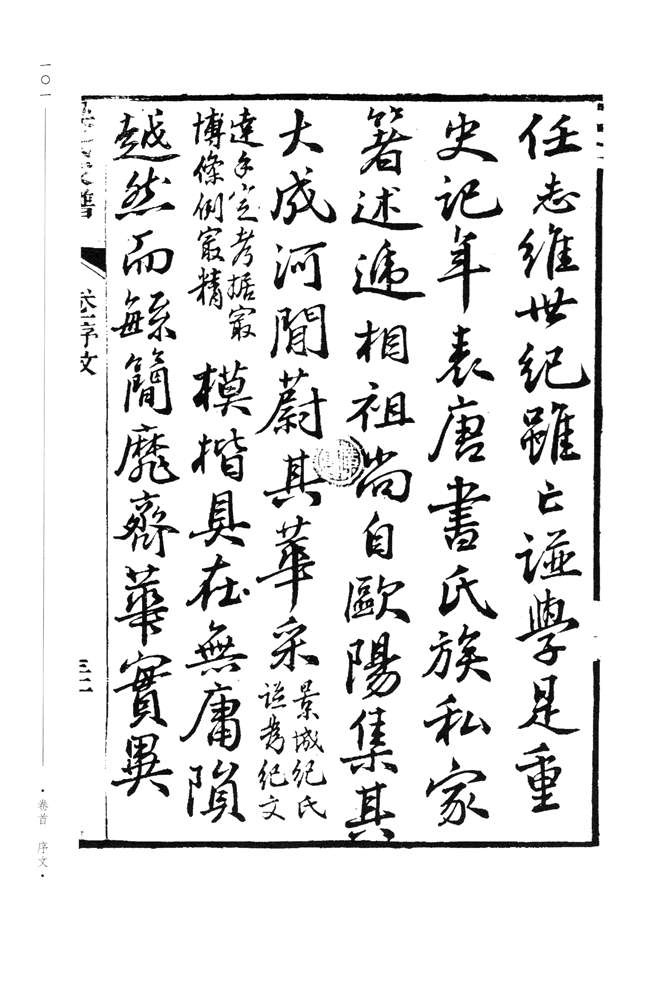 任志維世紀雖亡譜學是重
史記年表唐書氏族私家
箸述遞相祖尚自歐陽集其
大成河間蔚其華采景城紀氏
譜為紀文
達手定考据最
博條例最精模楷具在無庸隕
越然而緐簡靡齊華實異
卷一序文
三
一〇一
·卷首 序文·